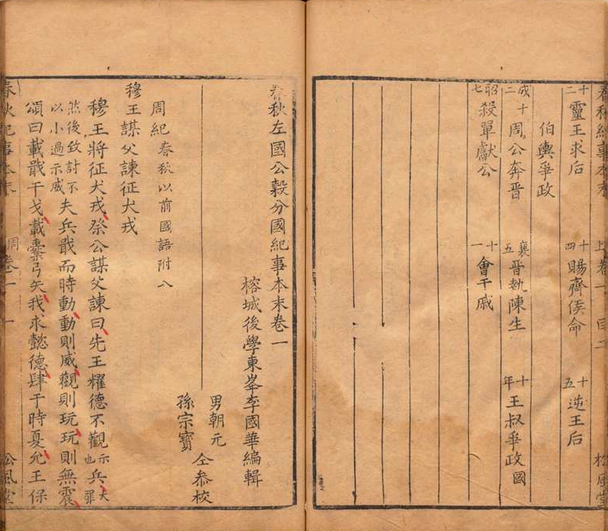 十二 靈王求后 十四 賜齊侯命 十五 逆王后
伯輿爭政
成十二 周公奔晉 襄五 晉執陳生 十年 王叔爭政
昭七 殺單獻公 十一 會于戚
春秋左國公穀分國紀事本末卷一
榕城後學東峯李國華編輯
男朝元
孫宗寶 仝叅校
周紀 春秋以前國語附入
穆王謀父諫征犬戎
穆王將征犬戎祭公謀父諫曰先王耀德不觀示也兵
然後致討不以小過示威夫兵戢而時動動則威觀則玩玩則無震
頌曰載戢干戈載櫜弓矢我求懿德肆于時夏允王保
春秋紀事本末 周卷一 一 松風堂